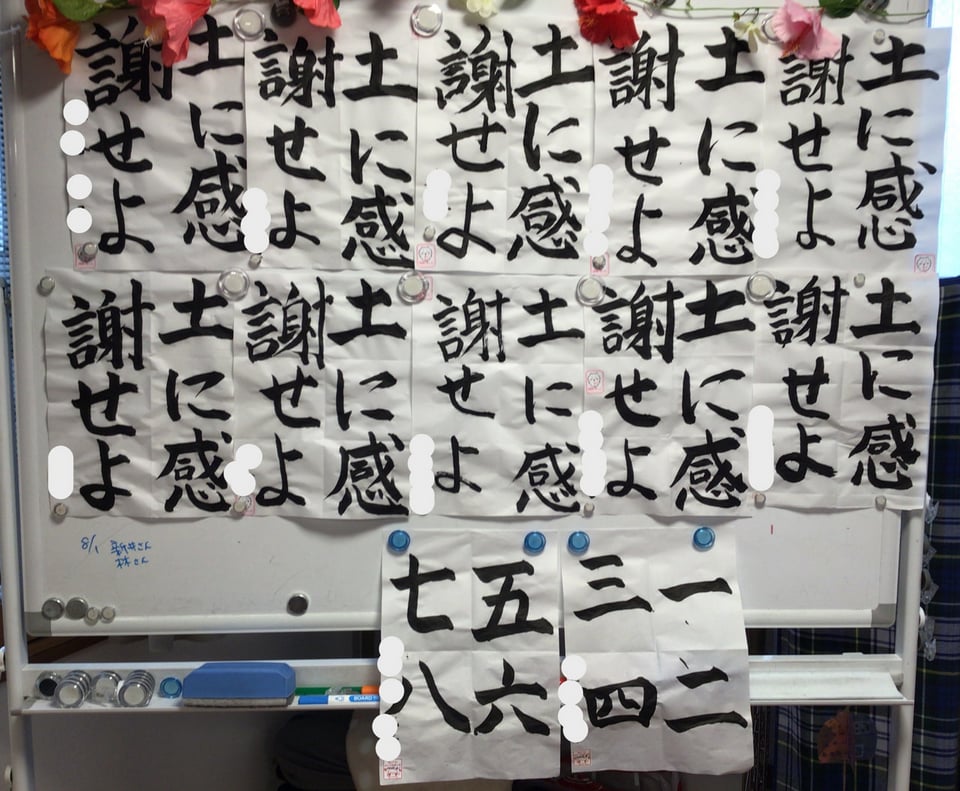 土に感
謝せよ
土に感
謝せよ
土に感
謝せよ
土に感
謝せよ
土に感
謝せよ
土に感
謝せよ
土に感
謝せよ
土に感
謝せよ
土に感
謝せよ
土に感
謝せよ
8/1 新井さん
林さん
一二
三四
五六
七八